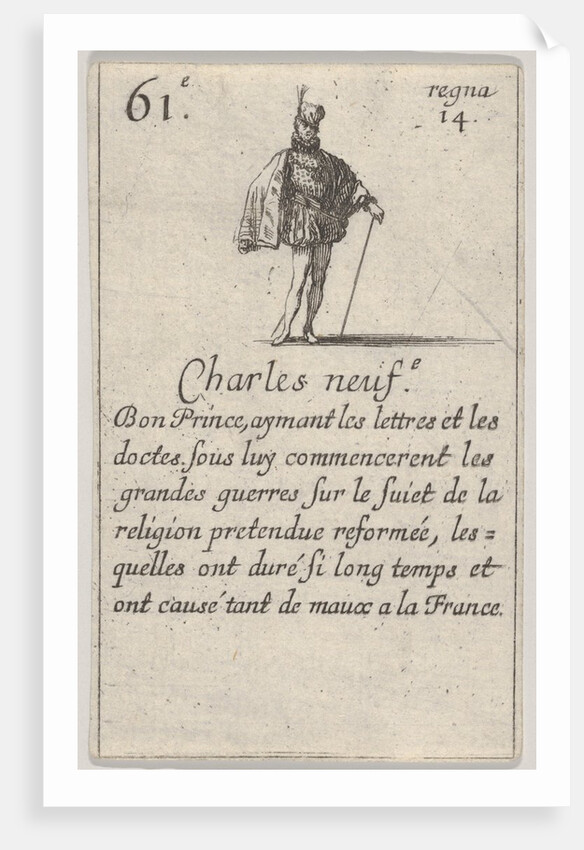 61.e
regna
14.
Charles neuf.e
Bon Prince, aymant les lettres et les
doctes. ſous luy commencerent les
grandes guerres ſur le ſuiet de la
religion pretendue reformeé, les=
quelles ont duré ſi long temps et
ont causé tant de maux a la France.